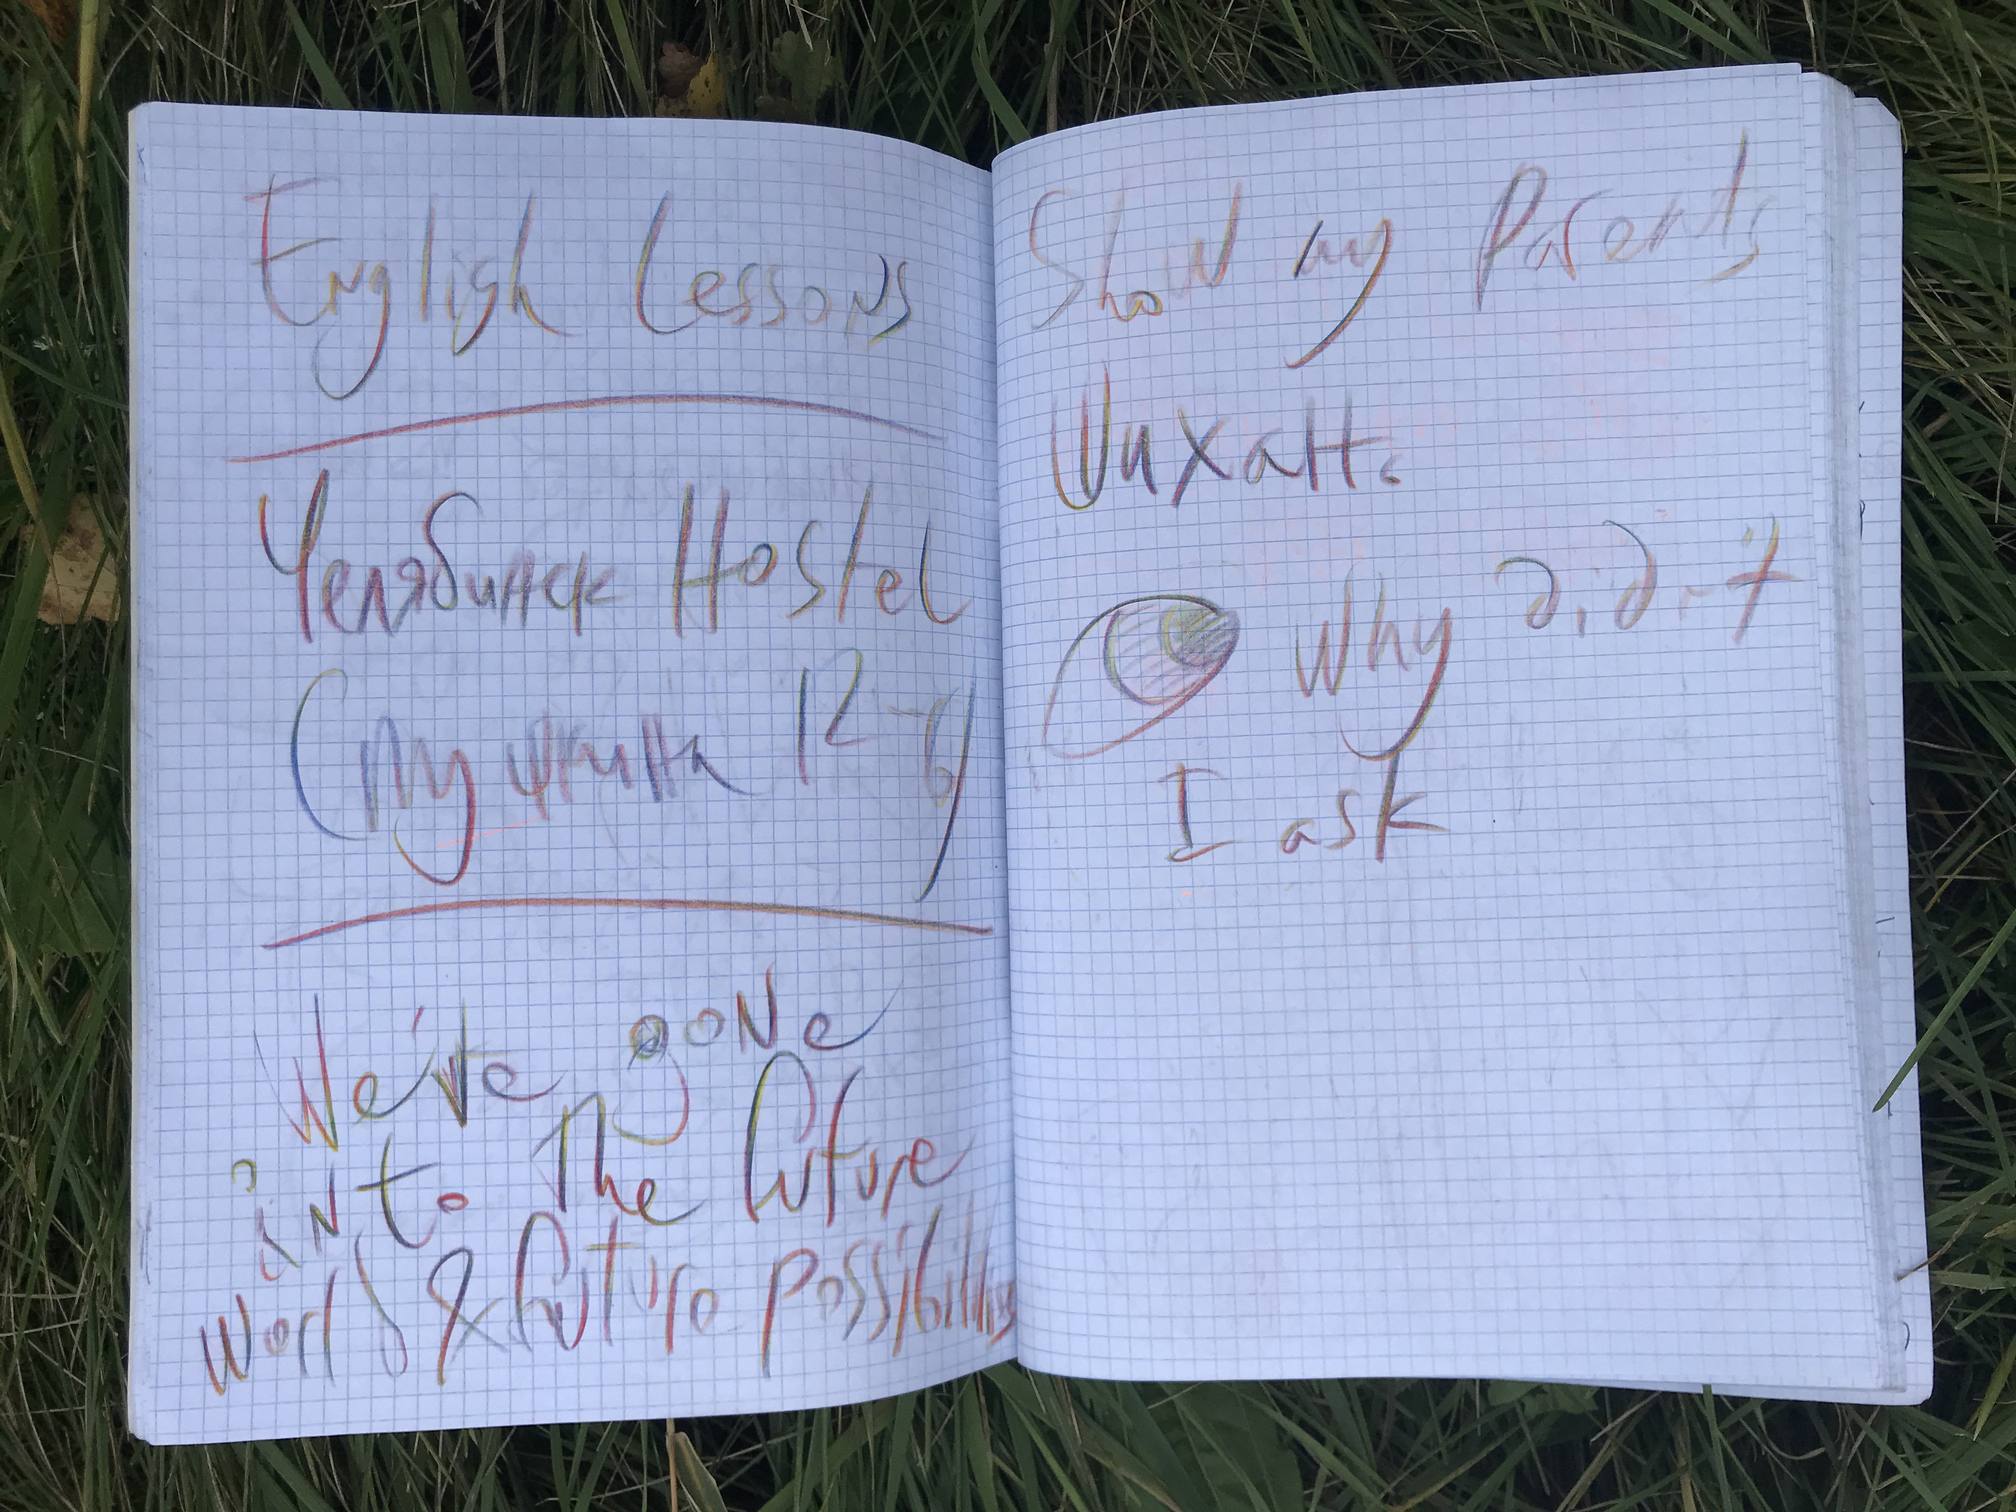 English Lessons
Челябинск Hostel
12-6)
We've gone
into The future
world & future possibilities
Show my Parents
Why didn't
I ask